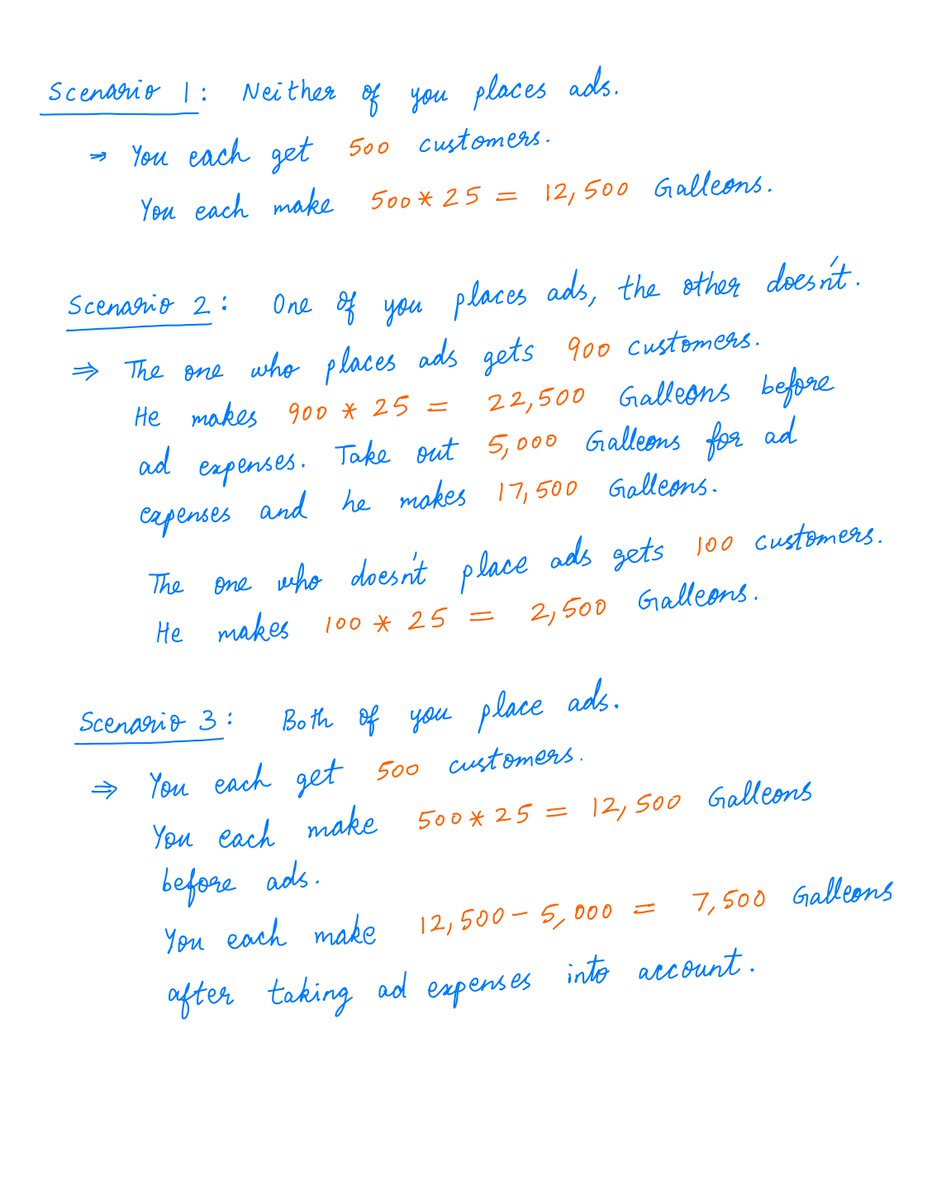 Scenario 1: Neither of you places ads.
⇒ You each get 500 customers.
You each make 500 * 25 = 12,500 Galleons.
Scenario 2: One of you places ads, the other doesn't.
⇒ The one who places ads gets 900 customers.
He makes 900 * 25 = 22,500 Galleons before
ad expenses. Take out 5,000 Galleons for ad
expenses and he makes 17,500 Galleons.
The one who doesn't place ads gets 100 customers.
He makes 100 * 25 = 2,500 Galleons.
Scenario 3: Both of you place ads.
⇒ You each get 500 customers.
You each make 500 * 25 = 12,500 Galleons
before ads.
You each make 12,500 - 5,000 = 7,500 Galleons
after taking ad expenses into account.